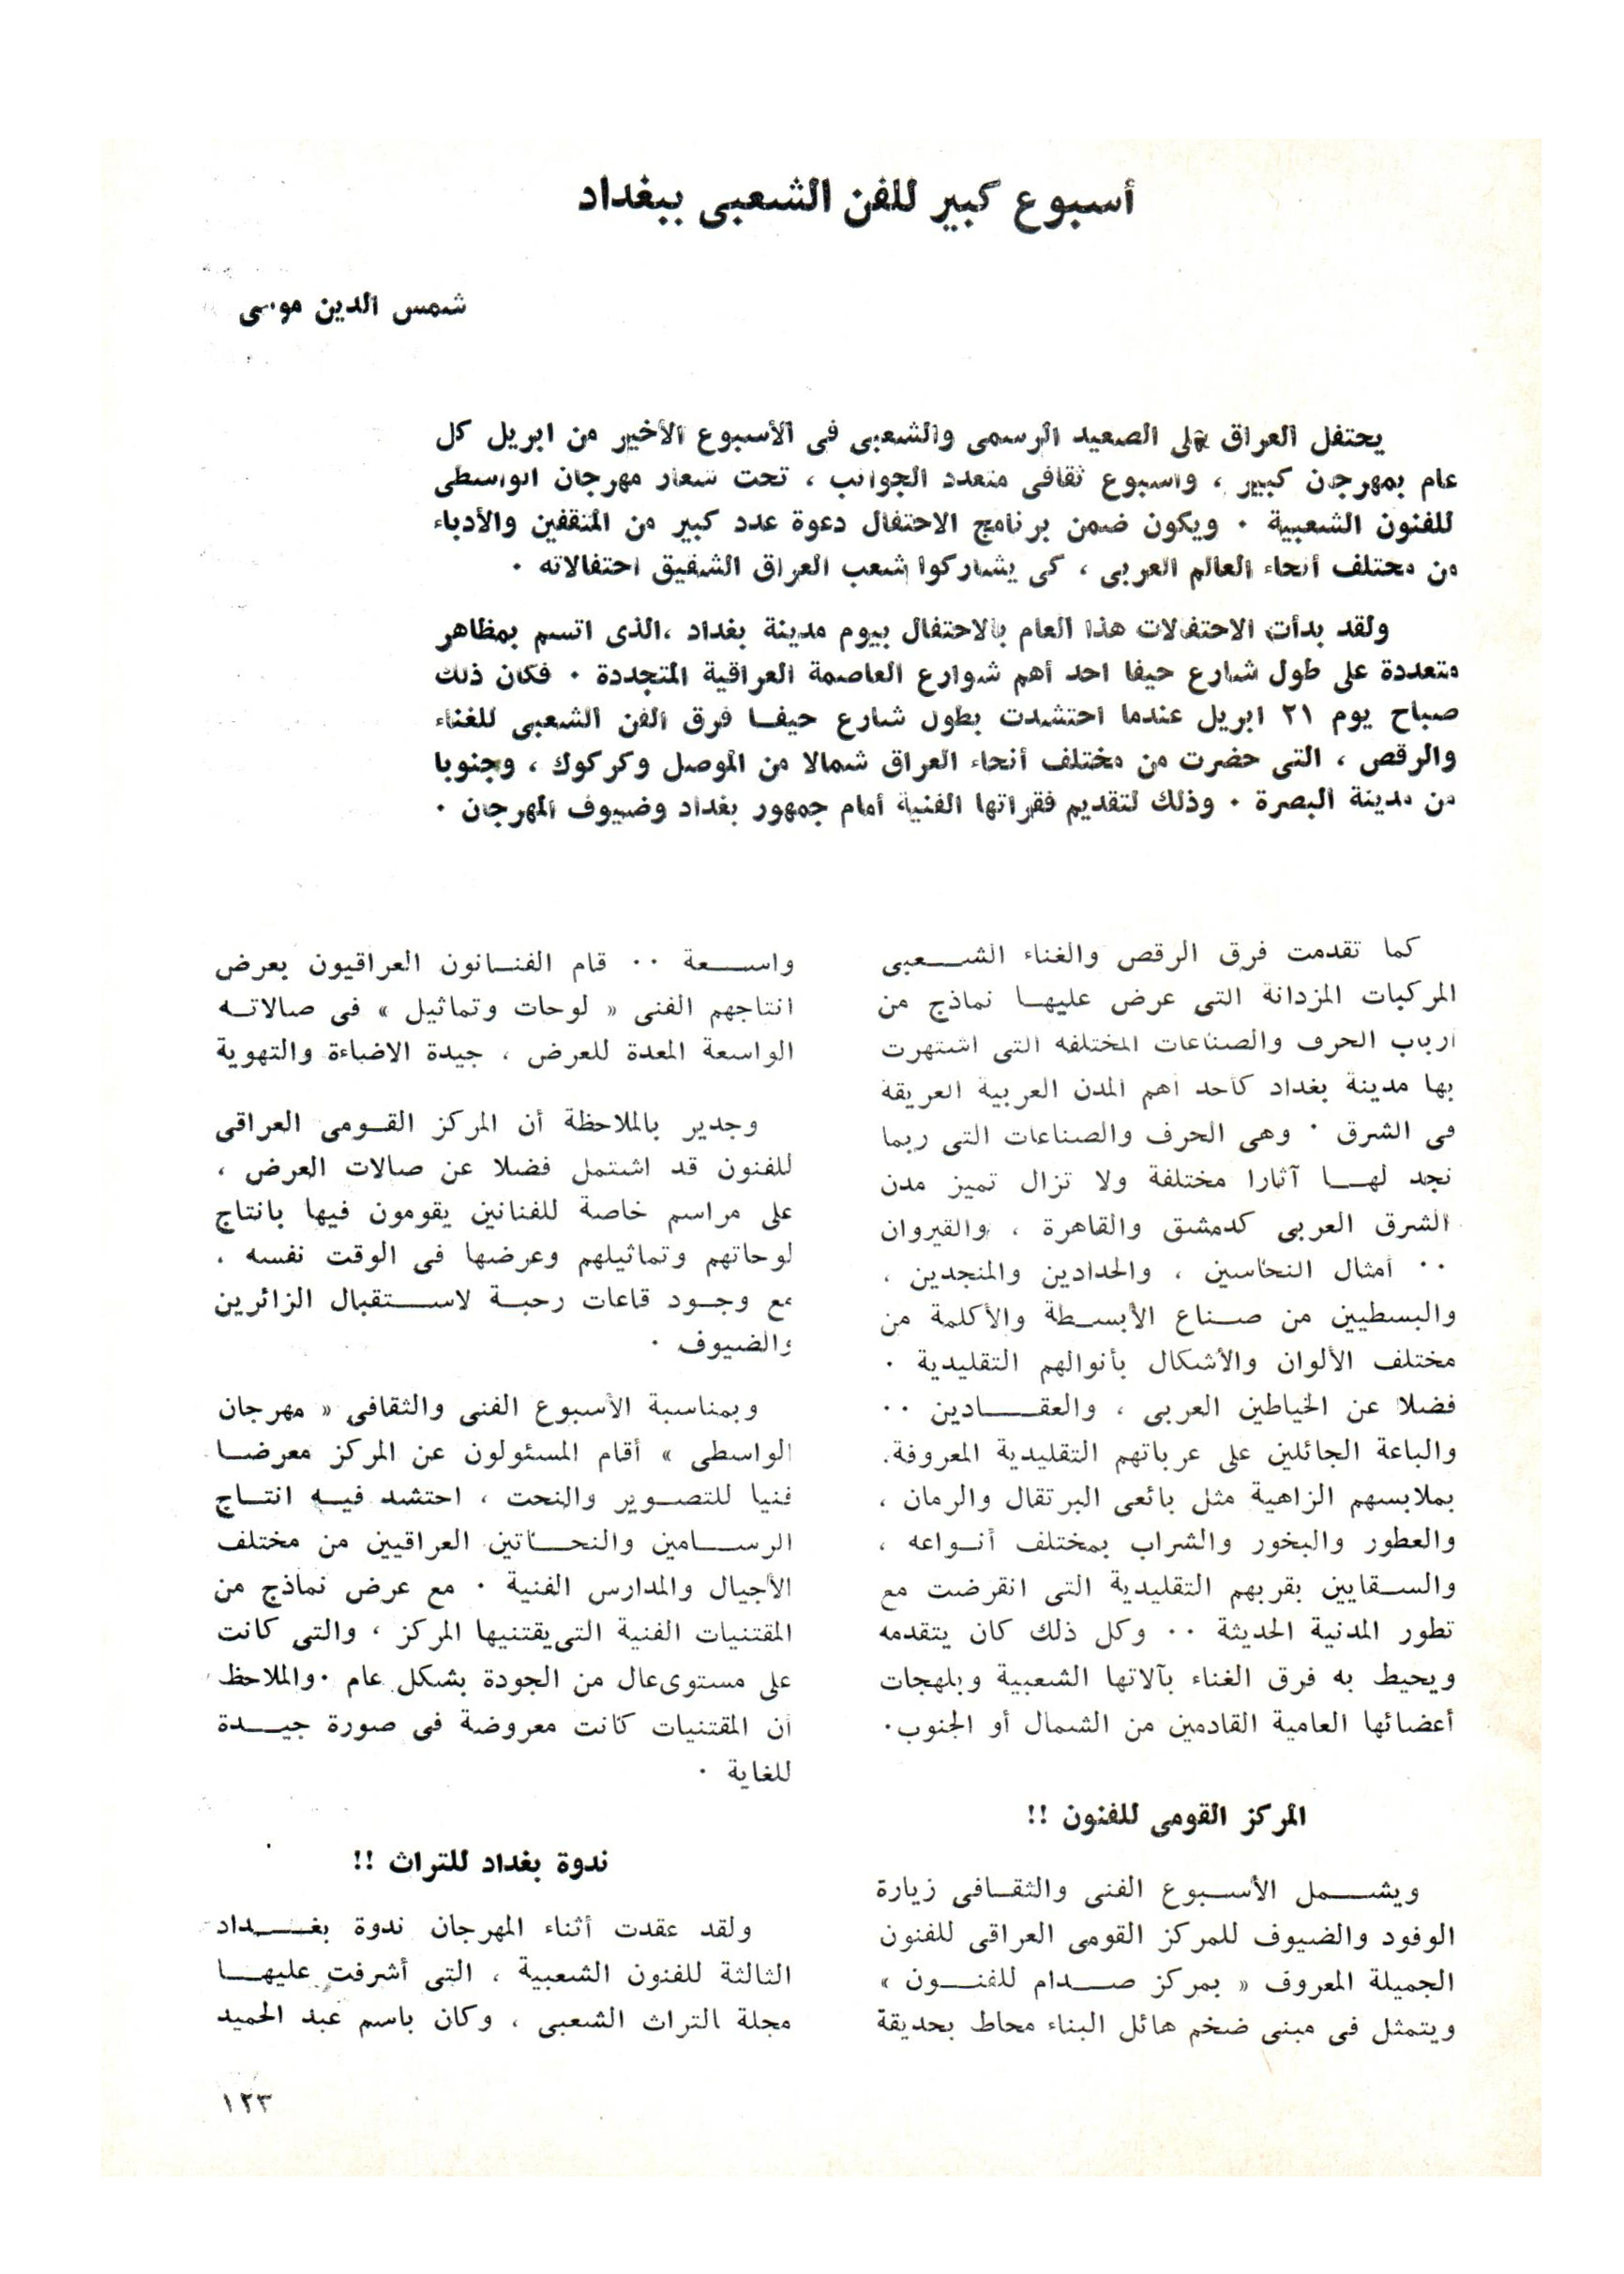 أسبوع كبير للفن الشعبى ببغداد
شمس الدين موسى
يحتفل العراق على الصعيد الرسمى والشعبى فى الأسبوع الأخير من ابريل كل
عام بمهرجان كبير ، واسبوع ثقافى متعدد الجوانب ، تحت شعار مهرجان الواسطى
للفنون الشعبية ٠ ويكون ضمن برنامج الاحتفال دعوة عدد كبير من المثقفين والأدباء
من مختلف أنحاء العالم العربى ، كى يشاركوا شعب العراق الشقيق احتفالاته ٠
ولقد بدأت الاحتفالات هذا العام بالاحتفال بيوم مدينة بغداد ،الذى اتسم بمظاهر
متعددة على طول شارع حيفا احد أهم شوارع العاصمة العراقية المتجددة ٠ فكان ذلك
صباح يوم ٢١ ابريل عندما احتشدت بطول شارع حيفا فرق الفن الشعبى للغناء
والرقص ، التى حضرت من مختلف أنحاء العراق شمالا من الموصل وكركوك ، وجنوبا
من مدينة البصرة ٠ وذلك لتقديم فقراتها الفنية أمام جمهور بغداد وضيوف المهرجان ٠
كما تقدمت فرق الرقص والغناء الشعبى
المركبات المزدانة التى عرض عليها نماذج من
أرباب الحرف والصناعات المختلفة التى اشتهرت
بها مدينة بغداد كأحد أهم المدن العربية العريقة
فى الشرق ٠ وهى الحرف والصناعات التى ربما
نجد لها آثارا مختلفة ولا تزال تميز مدن
الشرق العربى كدمشق والقاهرة ، والقيروان
٠٠ أمثال النحاسين ، والحدادين والمنجدين ،
والبسطيين من صناع الأبسطة والأكلمة من
مختلف الألوان والأشكال بأنوالهم التقليدية ٠
فضلا عن الخياطين العربى ، والعقادين ٠٠
والباعة الجائلين على عرباتهم التقليدية المعروفة.
بملابسهم الزاهية مثل بائعى البرتقال والرمان ،
والعطور والبخور والشراب بمختلف أنواعه ،
والسقايين بقربهم التقليدية التى انقرضت مع
تطور المدنية الحديثة ٠٠ وكل ذلك كان يتقدمه
ويحيط به فرق الغناء بآلاتها الشعبية وبلهجات
أعضائها العامية القادمين من الشمال أو الجنوب٠
المركز القومى للفنون !!
ويشمل الأسبوع الفنى والثقافى زيارة
الوفود والضيوف للمركز القومى العراقى للفنون
الجميلة المعروف « بمركز صدام للفنون »
ويتمثل فى مبنى ضخم هائل البناء محاط بحديقة
واسعة ٠٠ قام الفنانون العراقيون بعرض
انتاجهم الفنى « لوحات وتماثيل » فى صالاته
الواسعة المعدة للعرض ، جيدة الاضاءة والتهوية
وجدير بالملاحظة أن المركز القومى العراقى
للفنون قد اشتمل فضلا عن صالات العرض ،
على مراسم خاصة للفنانين يقومون فيها بانتاج
لوحاتهم وتماثيلهم وعرضها فى الوقت نفسه ،
مع وجود قاعات رحبة لاستقبال الزائرين
والضيوف ٠
وبمناسبة الأسبوع الفنى والثقافى « مهرجان
الواسطى » أقام المسئولون عن المركز معرضا
فنيا للتصوير والنحت ، احتشد فيه انتاج
الرسامين والنحاتين العراقيين من مختلف
الأجيال والمدارس الفنية ٠ مع عرض نماذج من
المقتنيات الفنية التى يقتنيها المركز ، والتى كانت
على مستوى عال من الجودة بشكل عام ٠ والملاحظ
أن المقتنيات كانت معروضة فى صورة جيدة
للغاية ٠
ندوة بغداد للتراث !!
ولقد عقدت أثناء المهرجان ندوة بغداد
الثالثة للفنون الشعبية ، التى أشرفت عليها
مجلة التراث الشعبى ، وكان باسم عبد الحميد
١٢٣